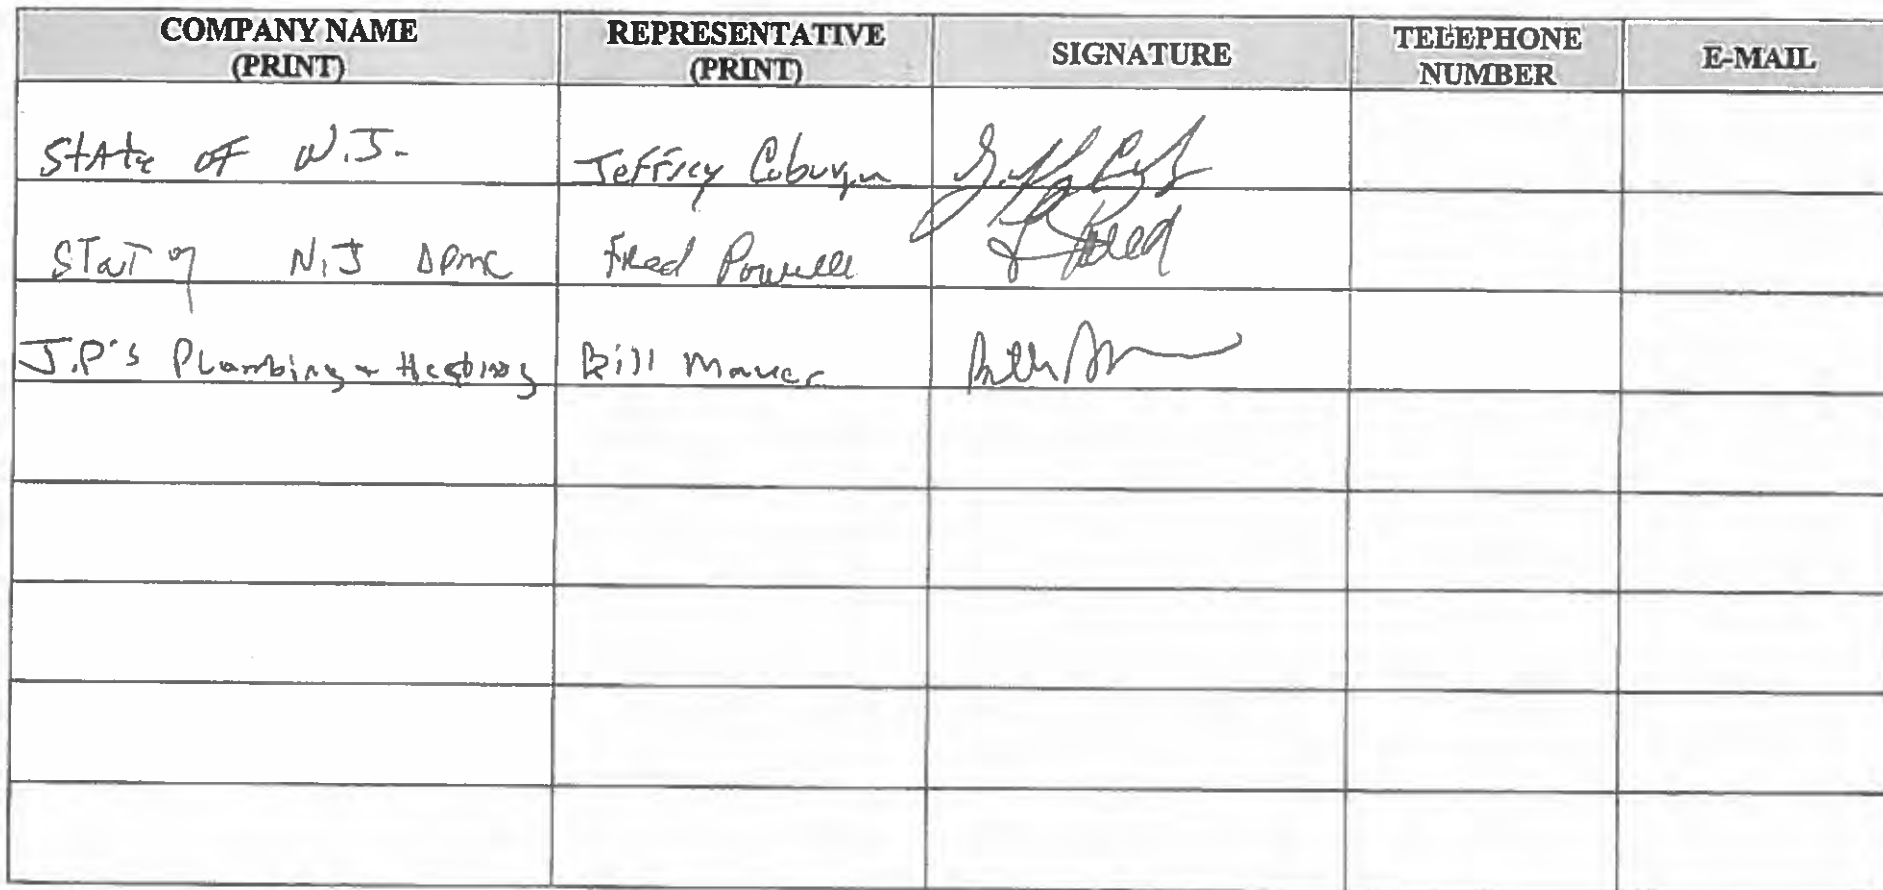 COMPANY NAME
(PRINT)
REPRESENTATIVE
(PRINT)
SIGNATURE
TELEPHONE
NUMBER
E-MAIL
StAte OF N.J.
Jeffrey
STaT of N.J DPMC
Fred Powell
J.P's Plumbing + Heating
Bill Mauer